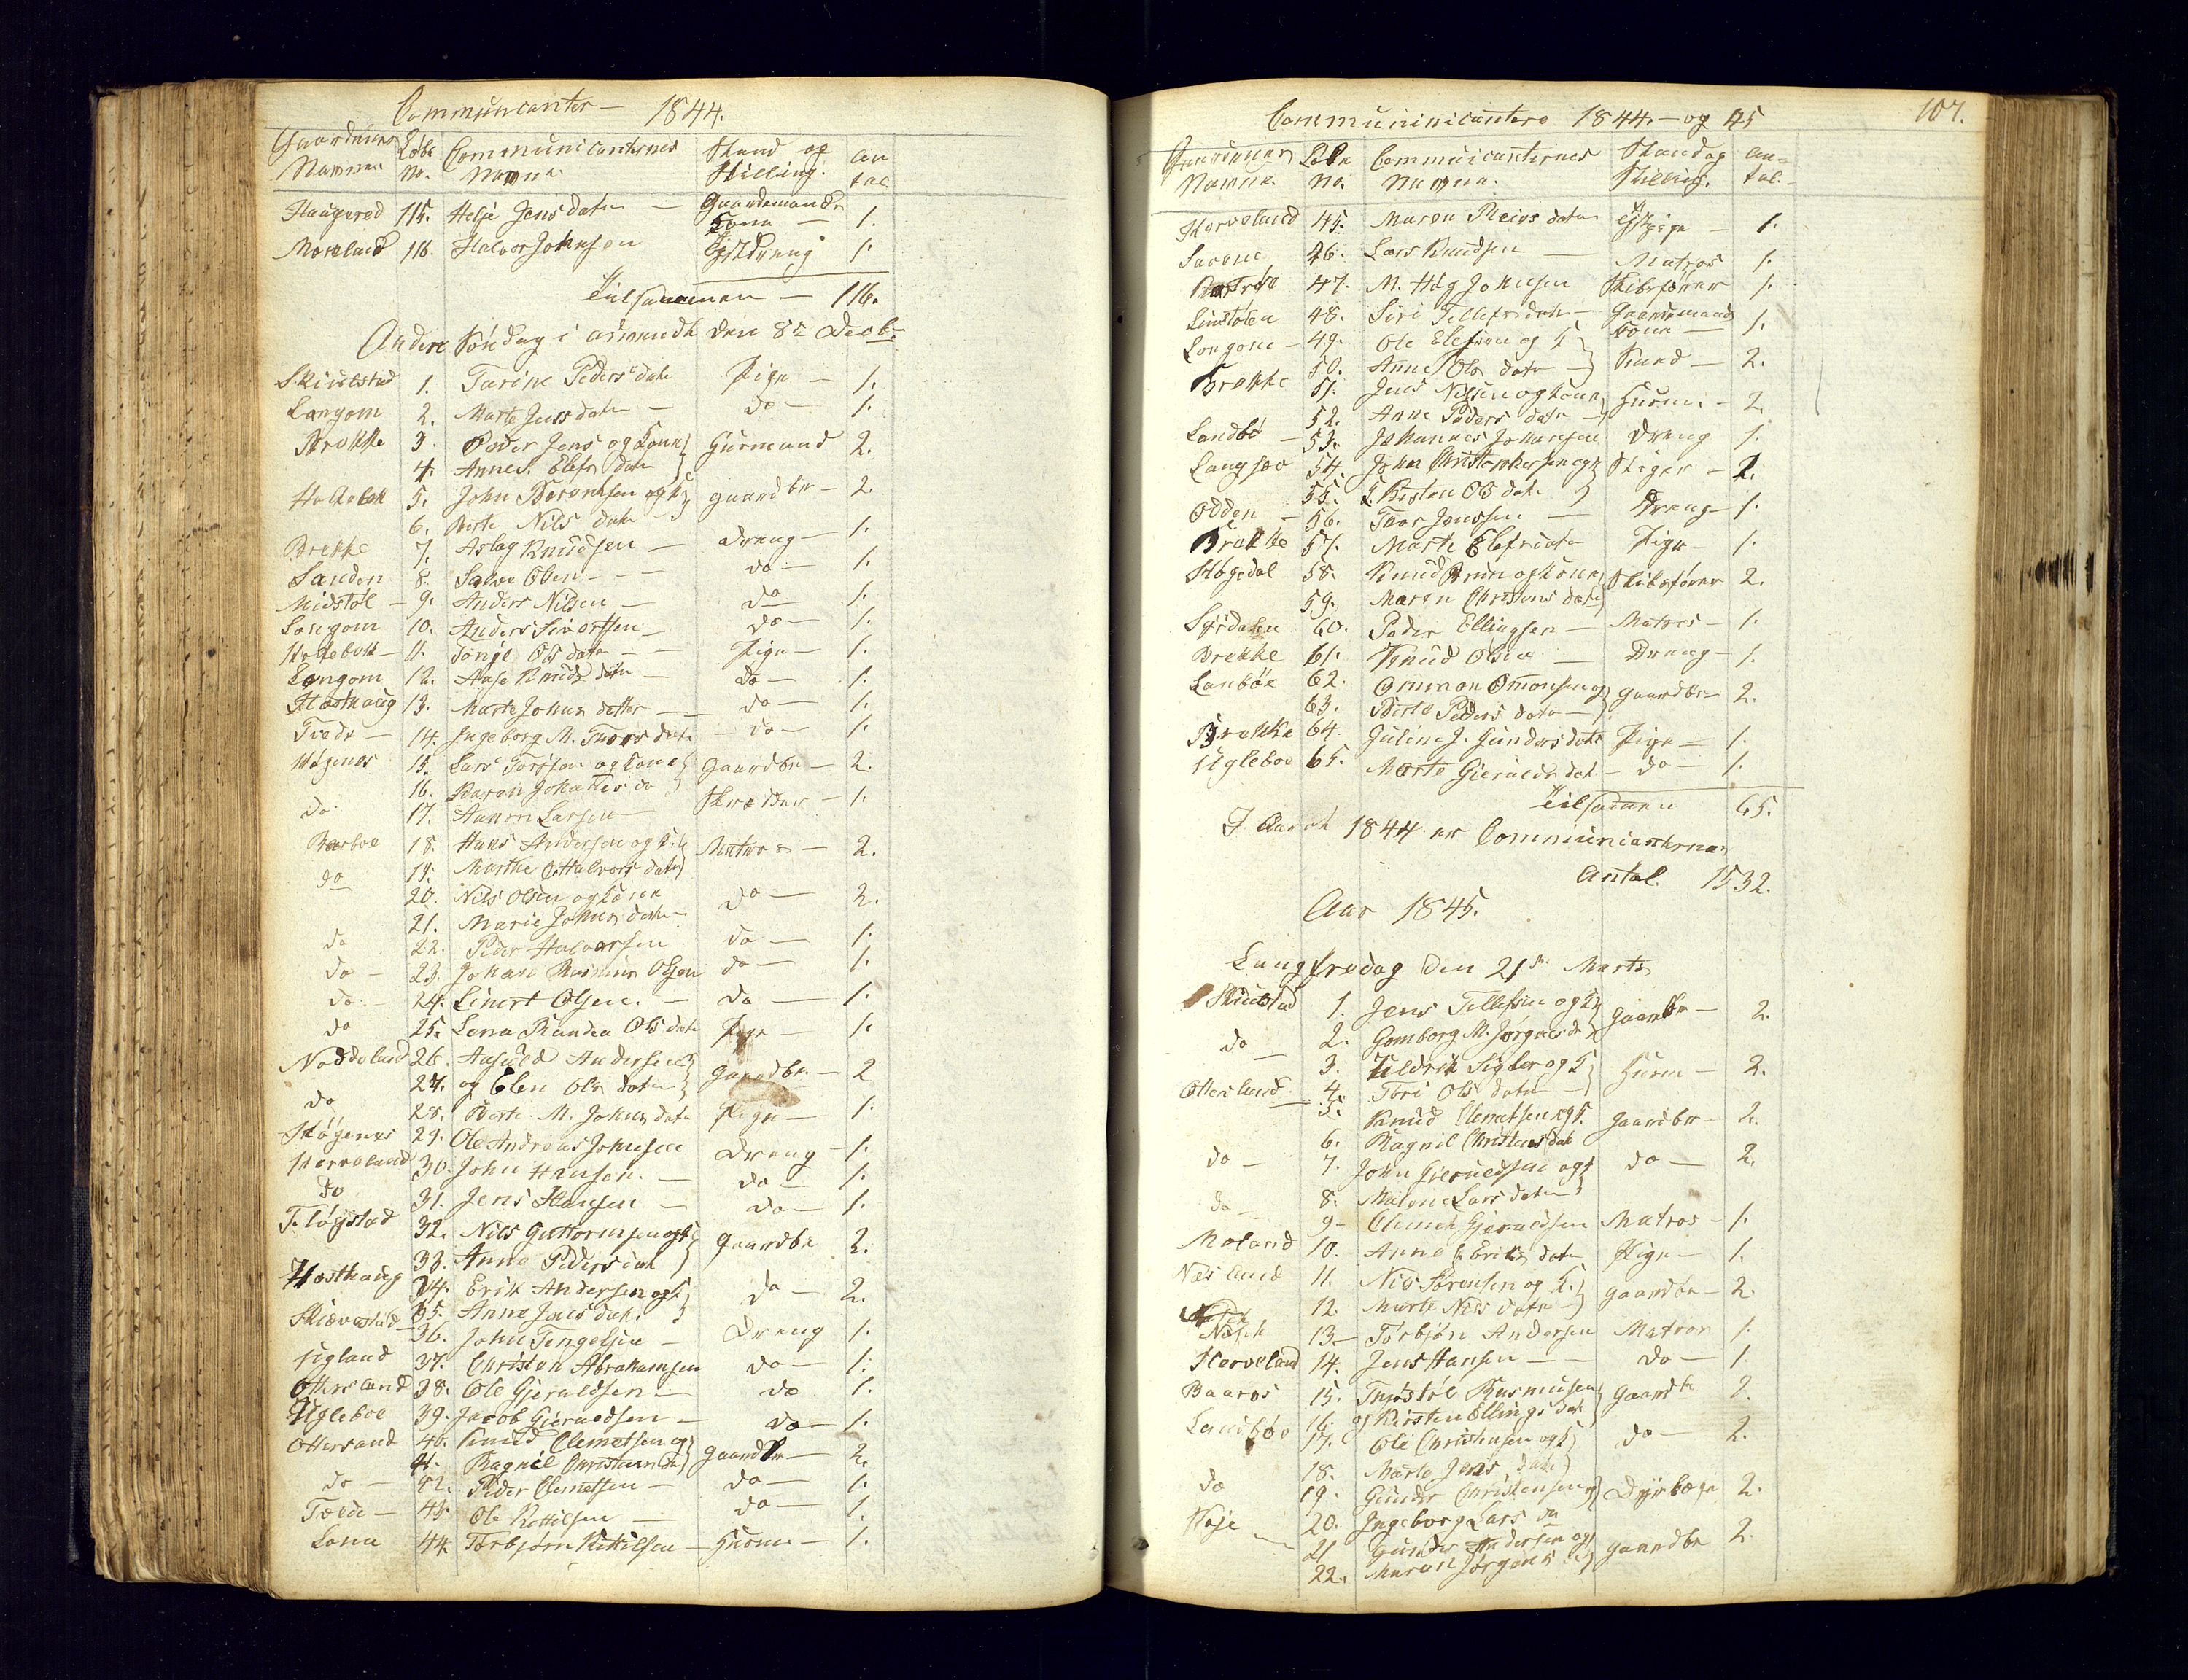 Communicanter — 1844.
Gaardenes Løbe Communicanternes Stand og an
Navne No. Navne Stilling. tal.
Haugerød 115. Helje Jensdater — Gaardemands
Kone — 1.
Moreland 116. Halvor Johnsen Dreng 1.
Tilsammen — 116.
Anden Søndag i advendt den 8de Decbr
Skiulstad 1. Tarine Peders date Pige — 1.
Langom 2. Marte Jensdater — do — 1.
Brække 3. Peder Jens og Kone Huusmand 2.
4. Anne Elefs date
Holtebek 5. John Berentsen og K gaardbr — 2.
6. Berte Nils date
Brekke 7. Aslag Knudsen — Dreng — 1.
Sanden 8. Salve Olsen — do — 1.
Midstøl — 9. Anders Nilsen — do 1.
Longom 10. Anders Sivertsen — do — 1.
Holtebek — 11. Tonje Ols date — Pige — 1.
Langom 12. Aase Knuds date — do — 1.
Hasthaug 13. Marte Johns datter — do — 1.
Tvede — 14. Ingeborg M. Thors date — do — 1.
Høgenes 15. Lars Torssen og Kone Gaardbr — 2.
16. Karen Johannes da
do 17. Aanon Larsen Skrædder — 1.
Barboe 18. Hans Andersen og K. Matros — 2.
19. Marthe Halvors date
do 20. Nils Olsen og Kone do — 2.
21. Marie Johns date —
do 22. Peder Halvorsen do — 1.
do — 23. Johan Rasmus Olsen do — 1.
do — 24. Linert Olsen. — do — 1.
do 25. Lena Randea Ols date Pige — 1.
Neddeland 26. Andersen
27. og Elen Ols date Gaardbr — 2
do 28. Berte M. Johns date Pige — 1.
Høgenes 29. Ole Andreas Johnsen Dreng — 1.
Herveland 30. John Hansen. — do — 1.
do 31. Jens Hansen — do — 1.
Fløgstad 32. Nils Guttormsen og K Gaardbr 2.
33. Anne Peders dat
Hasthaug 34. Erik Andersen og K do — 2.
35. Anne Jens date
Skiævestad 36. John Tengelsen — Dreng 1.
Ugland 37. Christen Abrahamsen do — 1.
Ottersland 38. Ole Gjeruldsen — do 1.
Ugleboe 39. Jacob Gieruldsen — do — 1.
Ottersland 40. Knud Clemetsen og gaardbr — 2.
41. Ragnil Christens da
do — 42. Peder Clemetsen — do — 1.
Tvede — 43. Ole Kittilsen — do — 1.
Lone 44. Torbjørn Kittilsen — Huusm — 1.
107.
Communinicantere 1844 — og 45
Gaardenes Løbe Communicanternes Stand og an=
Navne. No. Navne. Stilling. tal.
Herveland 45. Maren Reiers date Pige — 1.
46. Lars Knudsen — Matros 1.
47. M. HEg Johnsen Skibsfører 1.
Linstølen 48. Siri Tellefsdat — Gaardemands
Kone — 1.
Longone — 49. Ole Elefsen og K
50. Anne Ols date — 2.
Brække 51. Jens Nilsen og Kone Huusm. — 2.
52. Anne Peders date —
Landbø — 53. Johannes Johansen Dreng 1.
Langsæv 54. John Christophersen og K Stiger — 2.
55. Kirsten Ols date
Odden — 56. Thor Jenssen — Dreng — 1.
Brække 57. Marte Elefsdate Pige — 1.
Høgedal 58. Knud Bruun og Kone Skibsfører 2.
59. Maren Christens date
Syrdalen 60. Peder Ellingsen — Matros — 1.
Brekke 61. Knud Olsen — Dreng — 1.
Lanbøe 62. Omon Omonsen og gaardbr 2.
63. Berte Peders date —
Brække 64. Juline J. Gunders date Pige — 1.
Ugleboe 65. Marte Gierulds dat — do — 1.
Tilsammen 65.
I Aaret 1844 er Communicanternes
Antal. 1532.
Aar 1845.
Langfredag den 21de Marts
Skiulstad 1. Jens Tellefsen og K gaardbr — 2.
do 2. Gomborg M. Jørgens d
3. og K Huusm — 2.
4. Tori Ols date —
Ottersland 5. Knud Clemetsen og K. gaardbr — 2.
6. Ragnil Christens dat
do — 7. John Gieruldsen og K do — 2.
8. Malene Lars date
do — 9 — Clemet Gjeruldsen Matros — 1.
Moland 10. Anne Eriks date Pige — 1.
Næsland 11. Nils Sørensen og K. gaardbr — 2.
12. Marte Nils date —
Næseh 13 — Torbjøn Andersen Matros 1.
Herveland 14. Jens Hansen — do — 1
Baaros 15. Thorstol Rasmusen gaardb 2.
16. og Kirsten Ellings dat
Landbøe 17. Ole Christensen og K do — 2.
18. Marte Jens date
do 19. Gunder Christensen og 2.
20. Ingeborg Lars da
Haje — 21 Gunder Andersen og gaardbr 2.
22. Maren Jørgens d